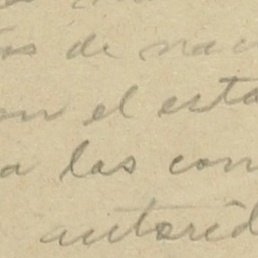 de nac
en el esta
a las con
autorid